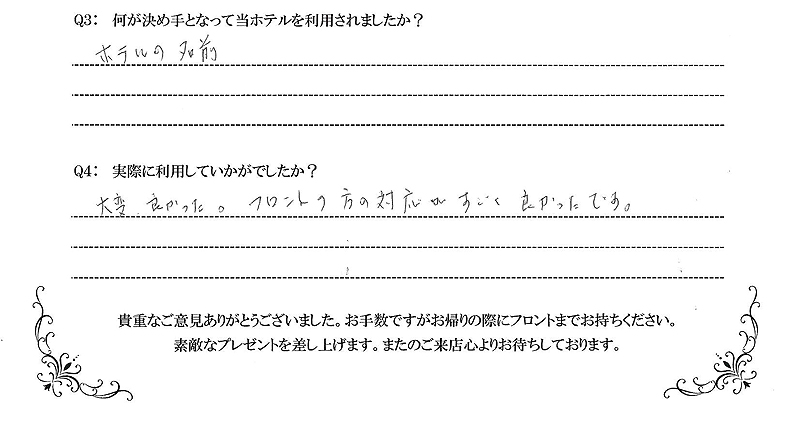 Q3： 何が決め手となって当ホテルを利用されましたか？
ホテルの名前
Q4： 実際に利用していかがでしたか？
大変 良かった。フロントの方の対応がすごく良かったです。
貴重なご意見ありがとうございました。お手数ですがお帰りの際にフロントまでお持ちください。
素敵なプレゼントを差し上げます。またのご来店心よりお待ちしております。